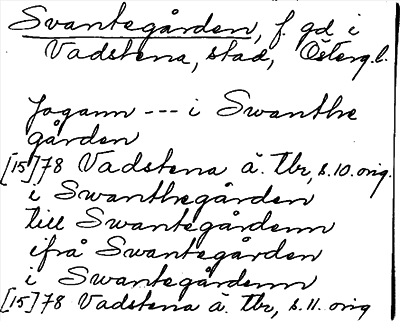 Svantegården, f. gd i
Vadstena, stad, Österg.l.
Jogann --- i Swanthe
gården
[15]78 Vadstena ä. Tbr, s. 10. orig.
i Swanthegården
till Swantegårdenn
ifrå Swantegården
i Swantegårdenn
[15]78 Vadstena ä. Tbr, s. 11. orig